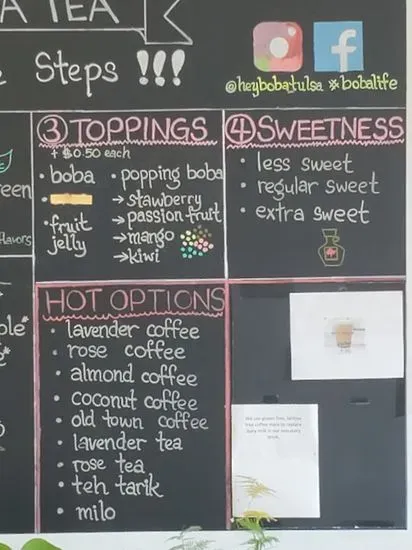 A TEA
Steps !!!
@heybobatulsa *bobalife
③ TOPPINGS
+ $0.50 each
• boba
• fruit
jelly
• popping boba
→ stawberry
→ passion fruit
→ mango
→ kiwi
④ SWEETNESS
• less sweet
• regular sweet
• extra sweet
reen
flavors
HOT OPTIONS
• lavender coffee
• rose coffee
• almond coffee
• coconut coffee
• old town coffee
• lavender tea
• rose tea
• teh tarik
• milo
ole*